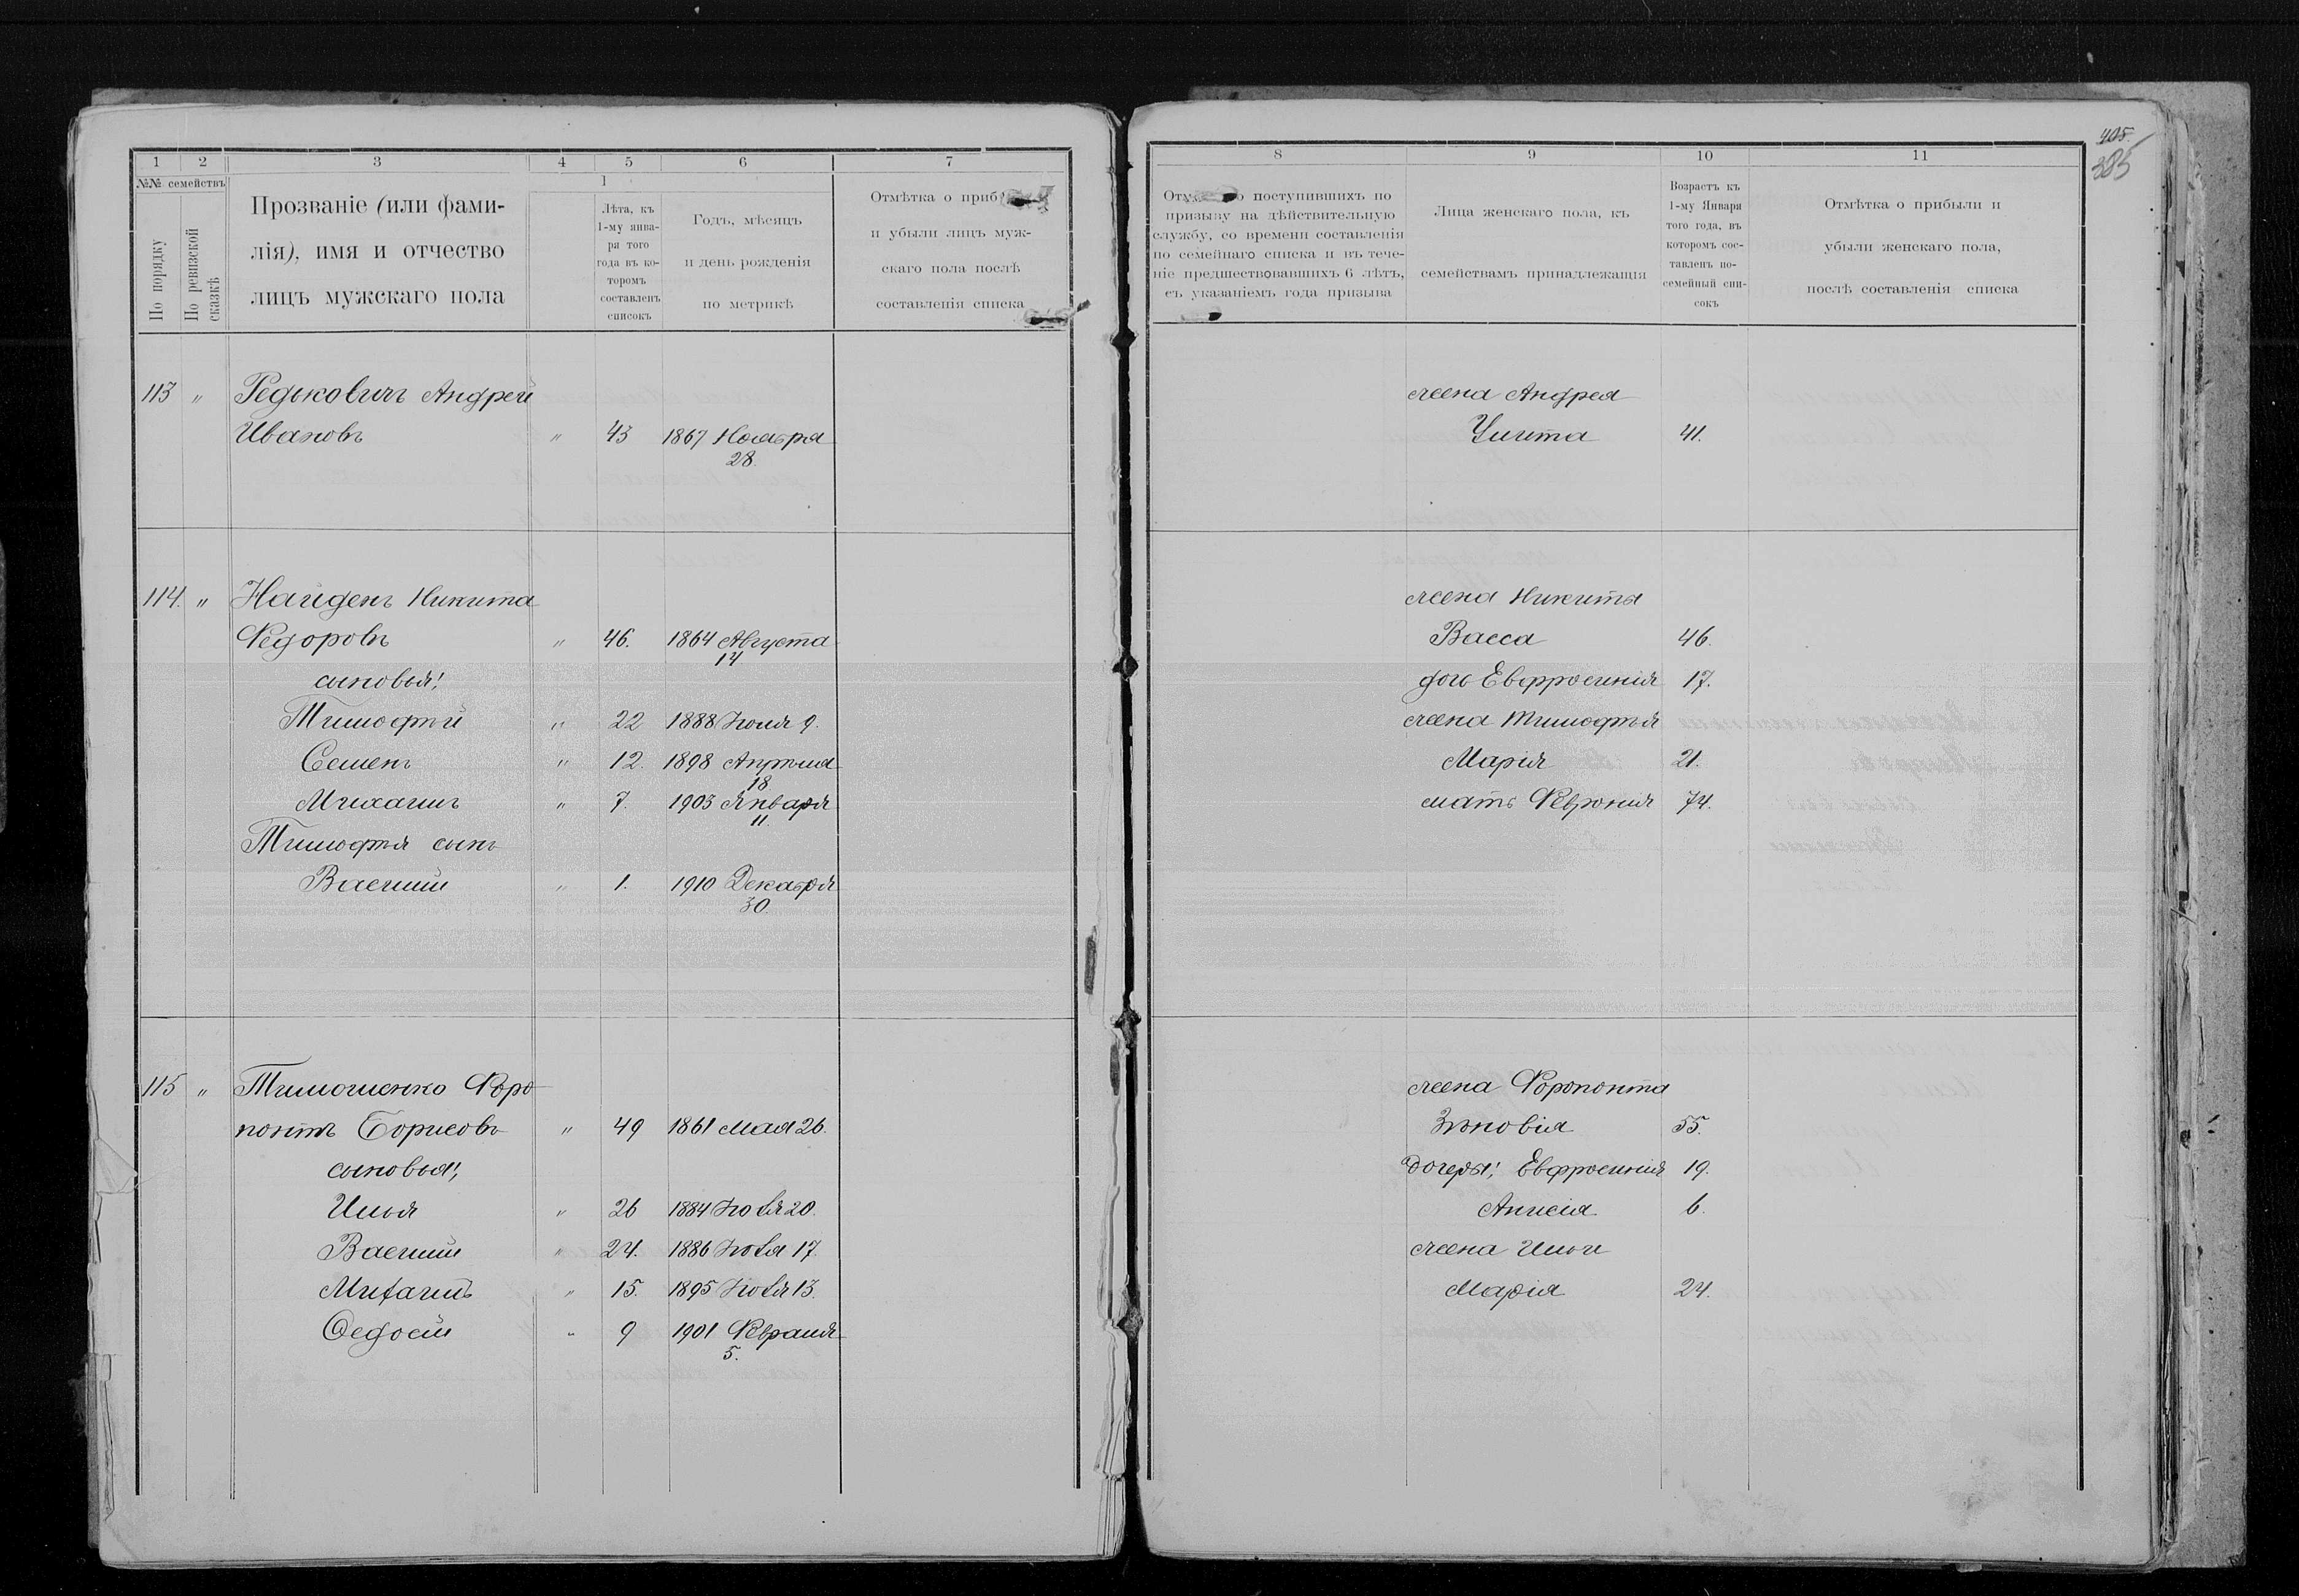 1 2 3 4 5 6 7
№№ семействъ
По порядку
По ревизской сказкѣ
Прозваніе (или фами-
лія), имя и отчество
лицъ мужскаго пола
1
Лѣта, къ
1-му янва-
ря того
года въ ко-
торомъ
составленъ
списокъ
Годъ, мѣсяцъ
и день рожденія
по метрикѣ
Отмѣтка о приб
и убыли лицъ муж-
скаго пола послѣ
составленія списка
113 " Редьковичъ Андрей
Ивановъ " 43 1867 Ноября
28.
114. " Найденъ Никита
Федоровъ " 46. 1864 Августа
14
сыновья:
Тимофѣй " 22 1888 Іюня 9.
Семенъ " 12. 1898 Апрѣля
18
Михаилъ " 7. 1903 Января
11.
Тимофѣя сынъ
Василій " 1. 1910 Декабря
30.
115 " Тимошенко Форо
понтъ Борисовъ " 49 1861 Мая 26.
сыновья:
Илья " 26 1884 Іюля 20.
Василій " 24. 1886 Іюля 17.
Михаилъ " 15. 1895 Іюля 13.
Федосій " 9 1901 Февраля
5.
405.
385
8 9 10 11
о поступившихъ по
призыву на дѣйствительную
службу, со времени составленія
по семейнаго списка и въ тече-
ніе предшествовавшихъ 6 лѣтъ,
съ указаніемъ года призыва
Лица женскаго пола, къ
семействамъ принадлежащія
Возрастъ къ
1-му Января
того года, въ
которомъ сос-
тавленъ по-
семейный спи-
сокъ
Отмѣтка о прибыли и
убыли женскаго пола,
послѣ составленія списка
жена Андрея
Улита 41.
жена Никиты
Васса 46.
дочь Евфросинія 17.
жена Тимофѣя
Марія 21.
мать Феврония 74.
жена Форопонта
Зѣновія 55.
дочери: Евфросинія 19.
Анисія 6.
жена Ильи
Марія 24.